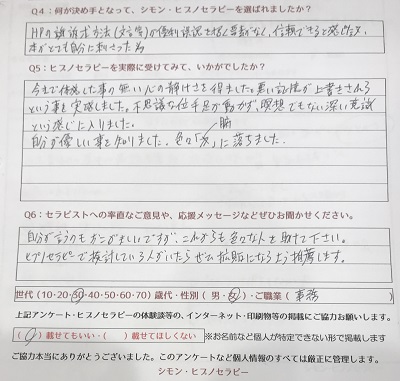 Q4：何が決め手となって、シモン・ヒプノセラピーを選ばれましたか？
HPの訴求方法(文言等)が
信頼できると感じた
本がとても自分に刺さった為
Q5：ヒプノセラピーを実際に受けてみて、いかがでしたか？
今まで体感した事の無い心の静けさを得ました。悪い記憶が上書きされる
という事を実感しました。不思議な位手足が動かず、瞑想でもない深い意識
という感じに入りました。
腑
自分が優しい事を知りました。色々「」に落ちました。
Q6：セラピストへの率直なご意見や、応援メッセージなどぜひお聞かせください。
自分が言うのもおこがましいですが、これからも色々な人を助けて下さい。
ヒプノセラピーで検討している人がいたらぜひ
推薦します。
世代（10・20・30・40・50・60・70）歳代・性別（ 男・女 ）・ご職業（ 事務 ）
上記アンケート・ヒプノセラピーの体験談等の、インターネット・印刷物等の掲載にご協力お願いします。
（ ）載せてもいい・（ ）載せてほしくない ※お名前など個人が特定できない形で掲載します
ご協力本当にありがとうございました。このアンケートなど個人情報のすべては厳正に管理します。
シモン・ヒプノセラピー